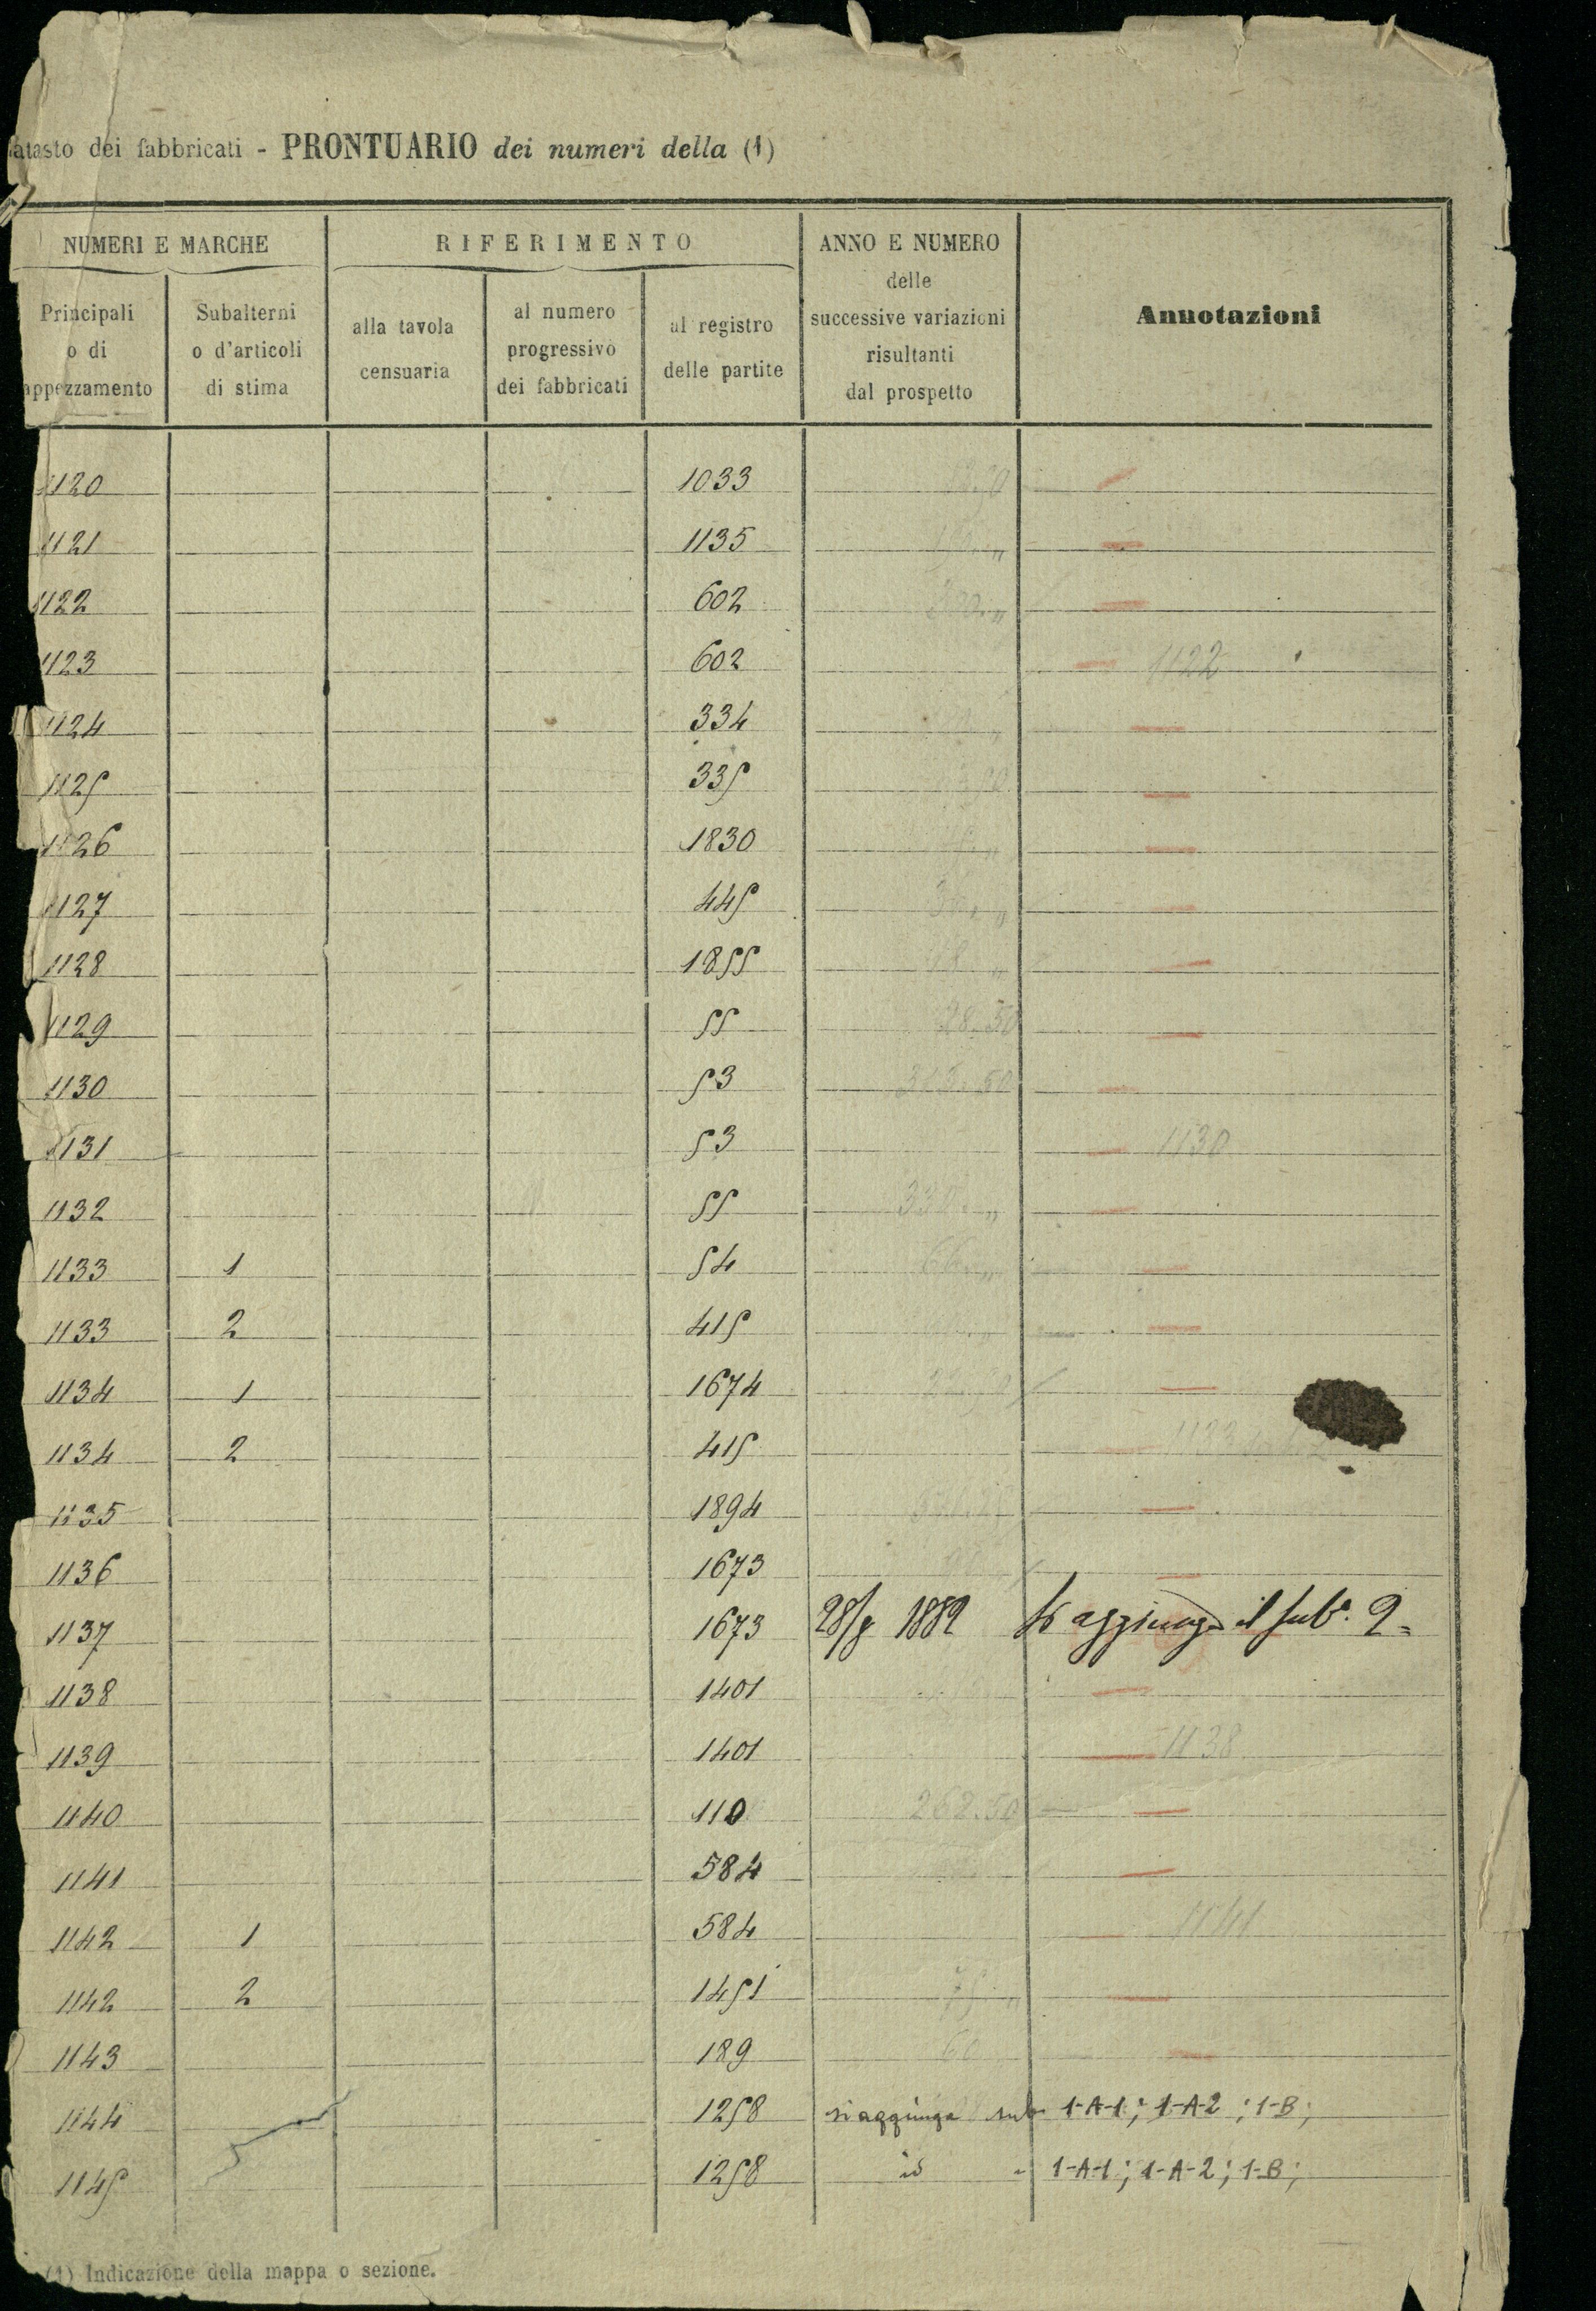 Catasto dei fabbricati - PRONTUARIO dei numeri della (1)
NUMERI E MARCHE RIFERIMENTO ANNO E NUMERO delle successive variazioni risultanti dal prospetto Annotazioni
Principali o di appezzamento Subalterni o d'articoli di stima alla tavola censuaria al numero progressivo dei fabbricati al registro delle partite
1120 1033
1121 1135
1122 602
1123 602 1122
1124 334
1125 335
1126 1830
1127 445
1128 1855
1129 55 28.50
1130 53 313.50
1131 53 1130
1132 55
1133 1 54 66
1133 2 415
1134 1 1674
1134 2 415 1133
1135 1894
1136 1673
1137 1673 28/8 1882 Si aggiunge il sub.e 2=
1138 1401
1139 1401 1138
1140 110 268.50
1141 584
1142 1 584 1141
1142 2 1451 75
1143 189 60
1144 1258 si aggiunga sub 1-A-1; 1-A-2; 1-B;
1145 1258 id " 1-A-1; 1-A-2; 1-B;
(1) Indicazione della mappa o sezione.